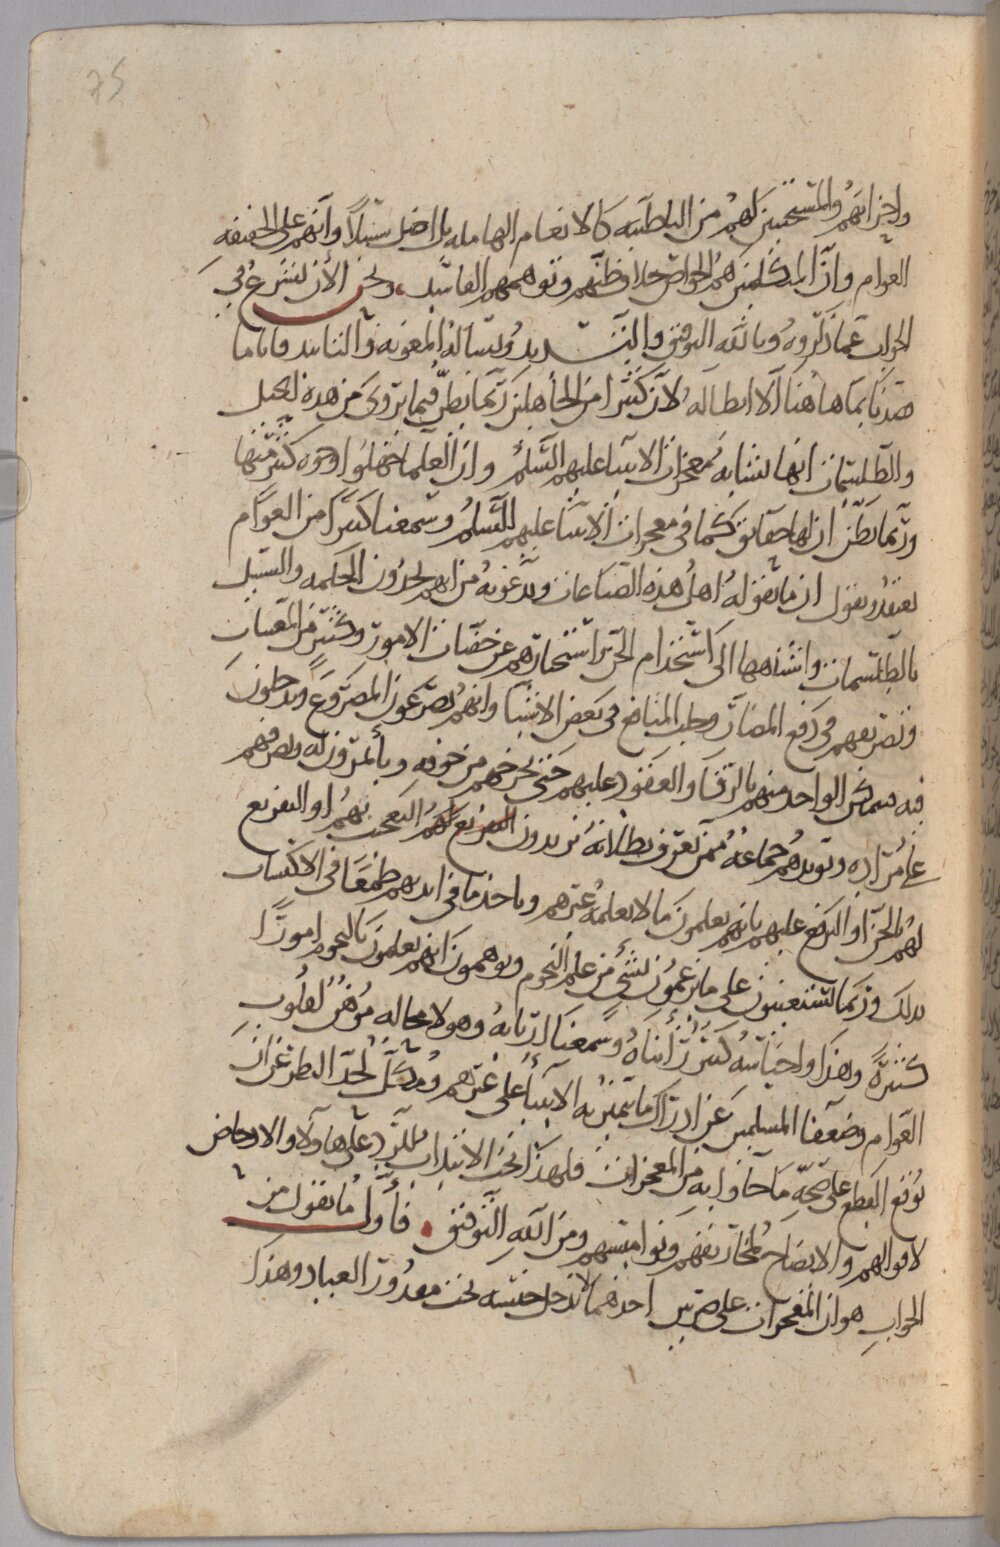 75
واحزابهم والمستجيبين لهم من الباطنيه كالانعام الهامله بل اضل سبيلا وانهم على الحقيقه
العوام وان المسلمين هم الخواص خلاف ظنهم وتوهمهم الفاسد ونحن الأن نشرع في
الجواب عما ذكروه وبالله التوفيق والتسديد ونساله المعونه والتاييد فاما ما
هاهنا الا ابطاله لان كثيرا من الجاهلين ربما يظن فيما يروى من هذه الحيل
والطلسمات انها تشابه معجزات الانبيا عليهم السلم وان العلما جهلوا وجوه كثير منها
وربما يظن ان لها حقايق كما في معجزات الانبيا عليهم السلم وسمعنا كثيرا من العوام
يعتقد ويقول ان ما يقوله اهل هذه الصناعات ويدعونه من انهم يجدون الحكمه والسبيل
بالطلسمات واشباهها الى استخدام الجن واستخبارهم عن خفيات الامور وكثير من المغيبات
وتصريفهم في دفع المضار وجلب المنافع في بعض الاشيا وانهم يصرعون المصروع ويدخلون
فيه فيمكن الواحد منهم بالرقا والعقود عليهم حتى يخرجهم من جوفه وياتمرون له ويصرفهم
على مراده ويويدهم جماعه ممن يعرف بطلانه يريدون التفزيع لهم التعجب بهم او التفزيع
لهم بالجن او الترفع عليهم بانهم يعلمون ما لا يعلمه غيرهم وياخذ ما في ايديهم طمعا في الاكتساب
بذلك وربما يستعينون على ما يزعمون بشي من علم النجوم ويوهمون انهم يعلمون بالنجوم امورا
كثيره وهذا واجناسه كثير رايناه وسمعنا اربابه وهو لا محاله موهن لقلوب
العوام وضعفا المسلمين عن ادراك ما يتميز به الانبيا على غيرهم ومشكل لحد النظر عن ان
يوقع القطع على صحه ما جاوا به من المعجزات فلهذا نحب الابتدا بالرد على هاولا والادحاض
لاقوالهم والايضاح لمخاريقهم ونواميسهم ومن الله التوفيق . فأول ما نقول من
الجواب هو ان المعجزات على ضربين احدهما لا يدخل جنسه تحت مقدور العباد وهذا